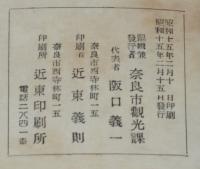 昭和十五年二月十日印刷
昭和十五年二月十五日発行
編輯兼発行者 奈良市観光課
代表者 阪口義一
奈良市西寺林町一五
印刷者 近東義則
奈良市西寺林町一五
印刷所 近東印刷所
電話二〇四一番